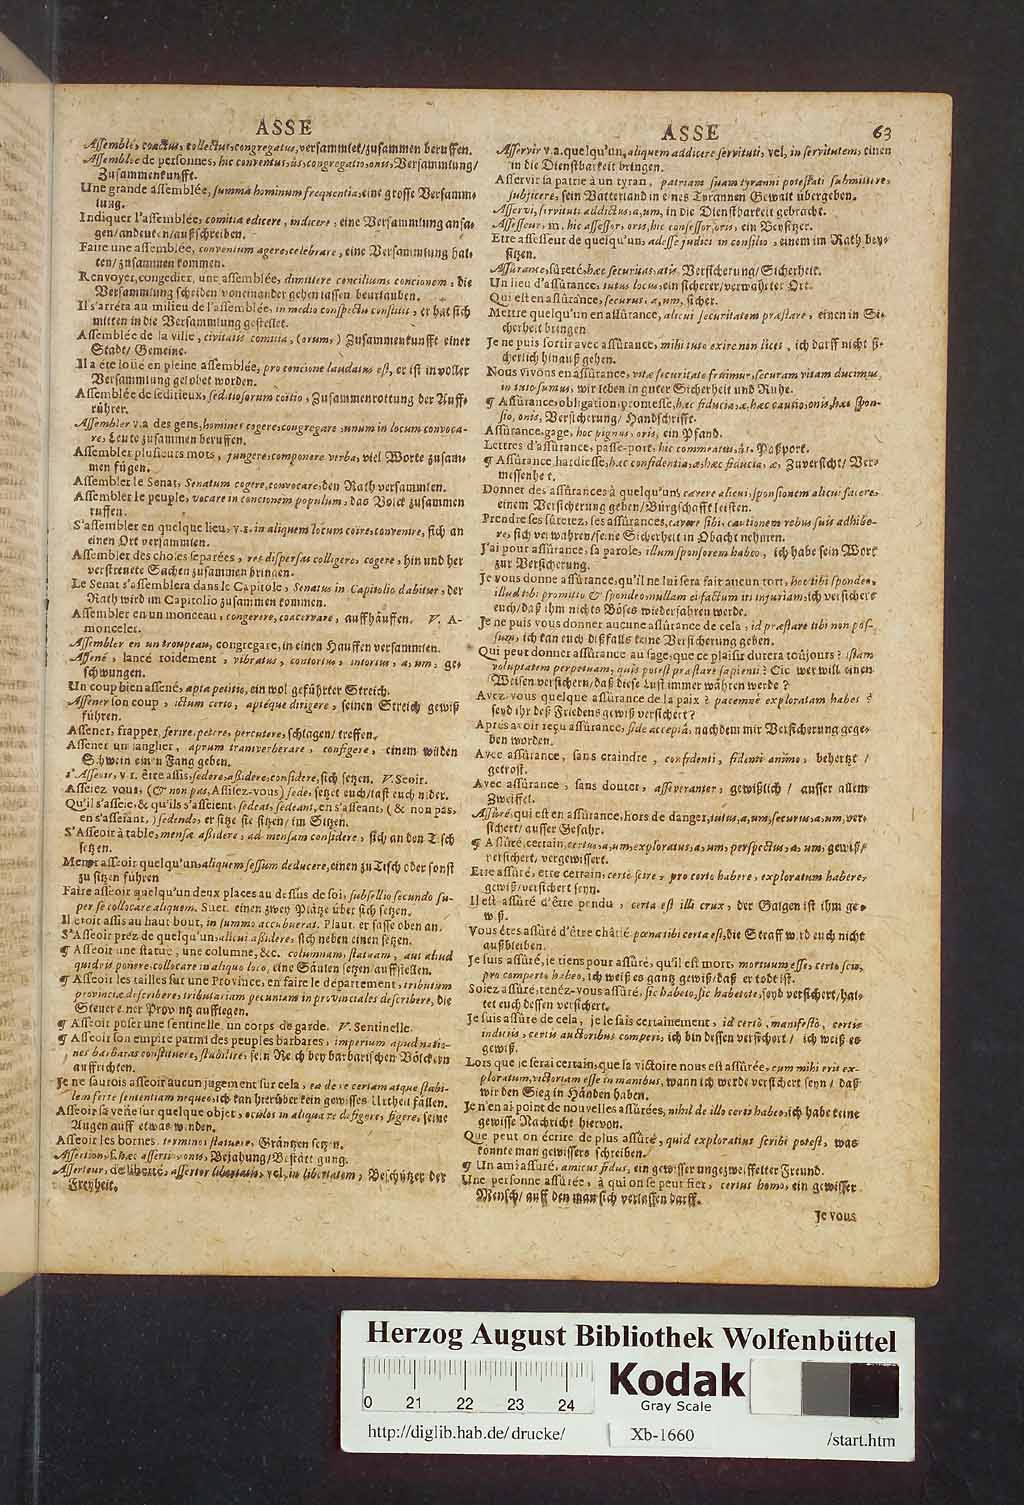 ASSE
Assemblé, coactus, collectus, congregatus, versammlet/zusammen beruffen.
Assemblée de personnes, hic conventus, ûs, congregatio, onis, Versammlung/
Zusammenkunfft.
Une grande assemblée, summa hominum frequentia, eine grosse Versamm-
lung.
Indiquer l'assemblée, comitia edicere, indicere, eine Versammlung ansa-
gen/andeuten/außschreiben.
Faire une assemblée, conventum agere, celebrare, eine Versammlung hal-
ten/zusammen kommen.
Renvoyer, congedier, une assemblée, dimittere concilium, concionem, die
Versammlung scheiden voneinander gehen lassen beurlauben.
Il s'arréta au milieu de l'assemblée, in medio conspectu constitit, er hat sich
mitten in die Versammlung gestellet.
Assemblée de la ville, civitatis comitia, (orum,) Zusammenkunfft einer
Stadt/ Gemeine.
Il a été loué en pleine assemblée, pro concione laudatus est, er ist in voller
Versammlung gelobet worden.
Assemblée de seditieux, seditiosorum coitio, Zusammenrottung der Auff-
rührer.
Assembler v.a des gens, homines cogere, congregare, unum in locum convoca-
re, Leute zusammen beruffen.
Assembler plusieurs mots, jungere, componere verba, viel Worte zusam-
men fügen.
Assembler le Senat, Senatum cogere, convocare, den Rath versammlen.
Assembler le peuple, vocare in concionem populum, das Volck zusammen
ruffen.
S'assembler en quelque lieu, v.r. in aliquem locum coire, convenire, sich an
einen Ort versammlen.
Assembler des choses separées, res dispersas colligere, cogere, hin und her
verstreuete Sachen zusammen bringen.
Le Senat s'assemblera dans le Capitole, Senatus in Capitolio dabitur, der
Rath wird im Capitolio zusammen kommen.
Assembler en un monceau, congerere, coacervare, auffhäuffen. V. A-
monceler.
Assembler en un troupeau, congregare, in einen Hauffen versammlen.
Assené, lancé roidement, vibratus, contortus, intortus, a, um, ge-
schwungen.
Un coup bien assené, apta petitio, ein wol geführter Streich.
Assener son coup, ictum certo, aptéque dirigere, seinen Streich gewiß
führen.
Assener, frapper, ferire, petere, percutere, schlagen/treffen.
Assener un sanglier, aprum transverberare, configere, einem wilden
Schwein einen Fang geben.
s'Asseoir, v.r. être assis, sedere, assidere, considere, sich setzen. V. Seoir.
Asseiez vous, (& non pas, Assisez-vous) sede, setzet euch/last euch nider.
Qu'il s'asseie, & qu'ils s'asseient, sedeat, sedeant, en s'asseant, (& non pas,
en s'asseant,) sedendo, er sitze sie sitzen/ im Sitzen.
S'Asseoir à table, mensæ assidere, ad mensam considere, sich an den Tisch
setzen.
Mener asseoir quelqu'un, aliquem sessum deducere, einen zu Tisch oder sonst
zu sitzen führen
Faire asseoir quelqu'un deux places au dessus de soi, subsellio secundo su-
per se collocare aliquem. Suet. einen zwey Plätze über sich setzen.
Il étoit assis au haut bout, in summo accubuerat. Plaut. er sasse oben an.
S'Asseoir préz de quelqu'un, alicui assidere, sich neben einen setzen.
¶ Asseoir une statue, une columne, &c. columnam, statuam, aut aliud
quidvis ponere, collocare in aliquo loco, eine Säulen setzen/auffstellen.
¶ Asseoir les tailles sur une Province, en faire le département, tributum
provinciæ describere, tributariam pecuniam in provinciales describere, die
Steuer einer Provintz aufflegen.
¶ Asseoir poser une sentinelle, un corps de garde. V. Sentinelle.
¶ Asseoir son empire parmi des peuples barbares, imperium apud natio-
nes barbaras constituere, stabilire, sein Reich bey barbarischen Völckern
auffrichten.
Je ne saurois asseoir aucun jugement sur cela, ea de re certam atque stabi-
lem ferre sententiam nequeo, ich kan hierüber kein gewisses Urtheil fällen.
Asseoir sa veüe sur quelque objet, oculos in aliqua re defigere, figere, seine
Augen auff etwas wenden.
Asseoir les bornes, terminos statuere, Gräntzen setzen.
Assertion, f. hæc assertio, onis, Bejahung/Bestättigung.
Asserteur, de liberté, assertor libertatis, vel, in libertatem, Beschützer der
Freyheit.
ASSE 63
Asservir v.a. quelqu'un, aliquem addicere servituti, vel, in servitutem, einen
in die Dienstbarkeit bringen.
Asservir sa patrie à un tyran, patriam suam tyranni potestati submittere,
subjicere, sein Vatterland in eines Tyrannen Gewalt übergeben.
Asservi, servituti addictus, a, um, in die Dienstbarkeit gebracht.
Assesseur, m, hic assessor, oris, hic consessor, oris, ein Beysitzer.
Etre assesseur de quelqu'un, adesse judici in consilio, einem im Rath bey-
sitzen.
Assûrance, sûreté, hæc securitas, atis, Versicherung/Sicherheit.
Un lieu d'assûrance, tutus locus, ein sicherer/verwahrter Ort.
Qui est en assûrance, securus, a, um, sicher.
Mettre quelqu'un en assûrance, alicui securitatem præstare, einen in Si-
cherheit bringen
Je ne puis sortir avec assûrance, mihi tuto exire non licet, ich darff nicht si-
cherlich hinauß gehen.
Nous vivons en assûrance, vitæ securitate fruimur, securam vitam ducimus,
in tuto sumus, wir leben in guter Sicherheit und Ruhe.
¶ Assûrance, obligation, promesse, hæc fiducia, æ, hæc cautio, onis, hæc spon-
sio, onis, Versicherung/ Handschrifft.
Assûrance, gage, hoc pignus, oris, ein Pfand.
Lettres d'assûrance, passe-port, hic commeatus, ûs, Paßport.
¶ Assûrance, hardiesse, hæc confidentia, æ, hæc fiducia, æ, Zuversicht/ Ver-
messenheit.
Donner des assûrances à quelqu'un, cavere alicui, sponsionem alicui facere,
einem Versicherung geben/Bürgschafft leisten.
Prendre ses sûretez, ses assûrances, cavere sibi, cautionem rebus suis adhibe-
re, sich verwahren/seine Sicherheit in Obacht nehmen.
J'ai pour assûrance, sa parole, illum sponsorem habeo, ich habe sein Wort
zur Versicherung.
Je vous donne assûrance, qu'il ne lui sera fait aucun tort, hoc tibi spondeo,
illud tibi promitto & spondeo, nullam ei factum iri injuriam, ich versichere
euch/daß ihm nichts Böses wiederfahren werde.
Je ne puis vous donner aucune assûrance de cela, id præstare tibi non pos-
sum, ich kan euch dißfalls keine Versicherung geben.
Qui peut donner assûrance au sage, que ce plaisir durera toûjours? istam
voluptatem perpetuam, quis potest præstare sapienti? Cic. wer will einen
Weisen versichern/daß diese Lust immer währen werde?
Avez-vous quelque assûrance de la paix? pacemne exploratam habes?
seyd ihr deß Friedens gewiß versichert?
Après avoir reçu assûrance, fide acceptâ, nachdem mir Versicherung gege-
ben worden.
Avec assûrance, sans craindre, confidenti, fidenti animo, behertzt/
getrost.
Avec assûrance, sans douter, asseveranter, gewißlich/ ausser allem
Zweiffel.
Assûré, qui est en assûrance, hors de danger, tutus, a, um, securus, a, um, ver-
sichert/ausser Gefahr.
¶ Assûré, certain, certus, a, um, exploratus, a, um, perspectus, a, um, gewiß/
versichert, vergewissert.
Etre assûré, etre certain, certò scire, pro certo habere, exploratum habere,
gewiß/versichert seyn.
Il est assûré d'être pendu, certa est illi crux, der Galgen ist ihm ge-
wiß.
Vous étes assûré d'être châtié, pœna tibi certa est, die Straff wird euch nicht
außbleiben.
Je suis assûré, je tiens pour assûré, qu'il est mort, mortuum esse, certo scio,
pro comperto habeo, ich weiß es gantz gewiß/daß er todt ist.
Soiez assûré, tenéz-vous assûré, sic habeto, sic habetote, seyd versichert/hal-
tet euch dessen versichert.
Je suis assûré de cela, je le sais certainement, id certò, manifestò, certis
indiciis, certis auctoribus comperi, ich bin dessen versichert/ ich weiß es
gewiß.
Lors que je serai certain, que la victoire nous est assûrée, cum mihi erit ex-
ploratum, victoriam esse in manibus, wann ich werde versichert seyn/ daß
wir den Sieg in Händen haben.
Je n'en ai point de nouvelles assûrées, nihil de illo certi habeo, ich habe keine
gewisse Nachricht hiervon.
Que peut on écrire de plus assûré, quid exploratius scribi potest, was
könnte man gewissers schreiben.
¶ Un ami assûré, amicus fidus, ein gewisser ungezweiffelter Freund.
Une personne assûrée, à qui on se peut fier, certus homo, ein gewisser
Mensch/ auff den man sich verlassen darff.
Je vous
Herzog August Bibliothek Wolfenbüttel
Kodak
Gray Scale
0 21 22 23 24
http://diglib.hab.de/drucke/ Xb-1660 /start.htm